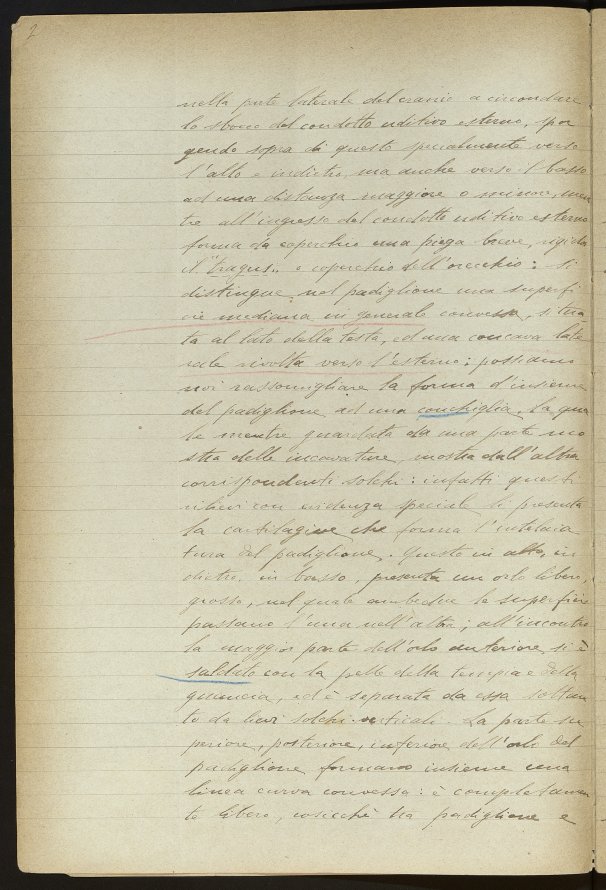 2
nella parte laterale del cranio a circondare
lo sbocco del condotto uditivo esterno, spor
gendo sopra di questo specialmente verso
l'alto e indietro, ma anche verso il basso
ad una distanza maggiore o minore, men
tre all'ingresso del condotto uditivo esterno
forma da coperchio una piega breve, rigida
il "tragus", o coperchio dell'orecchio: Si
distingue nel padiglione una superfi
cie mediana in generale convessa, situa
ta al lato della testa, ed una concava late
rale rivolta verso l'esterno: possiamo
noi rassomigliare la forma d'insieme
del padiglione ad una conchiglia, la qua
le mentre guardata da una parte mo
stra delle incavature, mostra dall'altra
corrispondenti solchi: infatti questi
rilievi con evidenza speciale li presenta
la cartilagine che forma l'intelaia
tura del padiglione. Questo in alto, in
dietro, in basso, presenta un orlo libero,
grosso, nel quale ambedue le superfici
passano l'una nell'altra; all'incontro
la maggior parte dell'orlo anteriore si è
saldato con la pelle della tempia e della
guancia, ed è separata da essa soltan
to da lievi solchi verticali. La parte su
periore, posteriore, inferiore dell'orlo del
padiglione formano insieme una
linea curva convessa: è completamen
te libero, cosicchè tra padiglione e